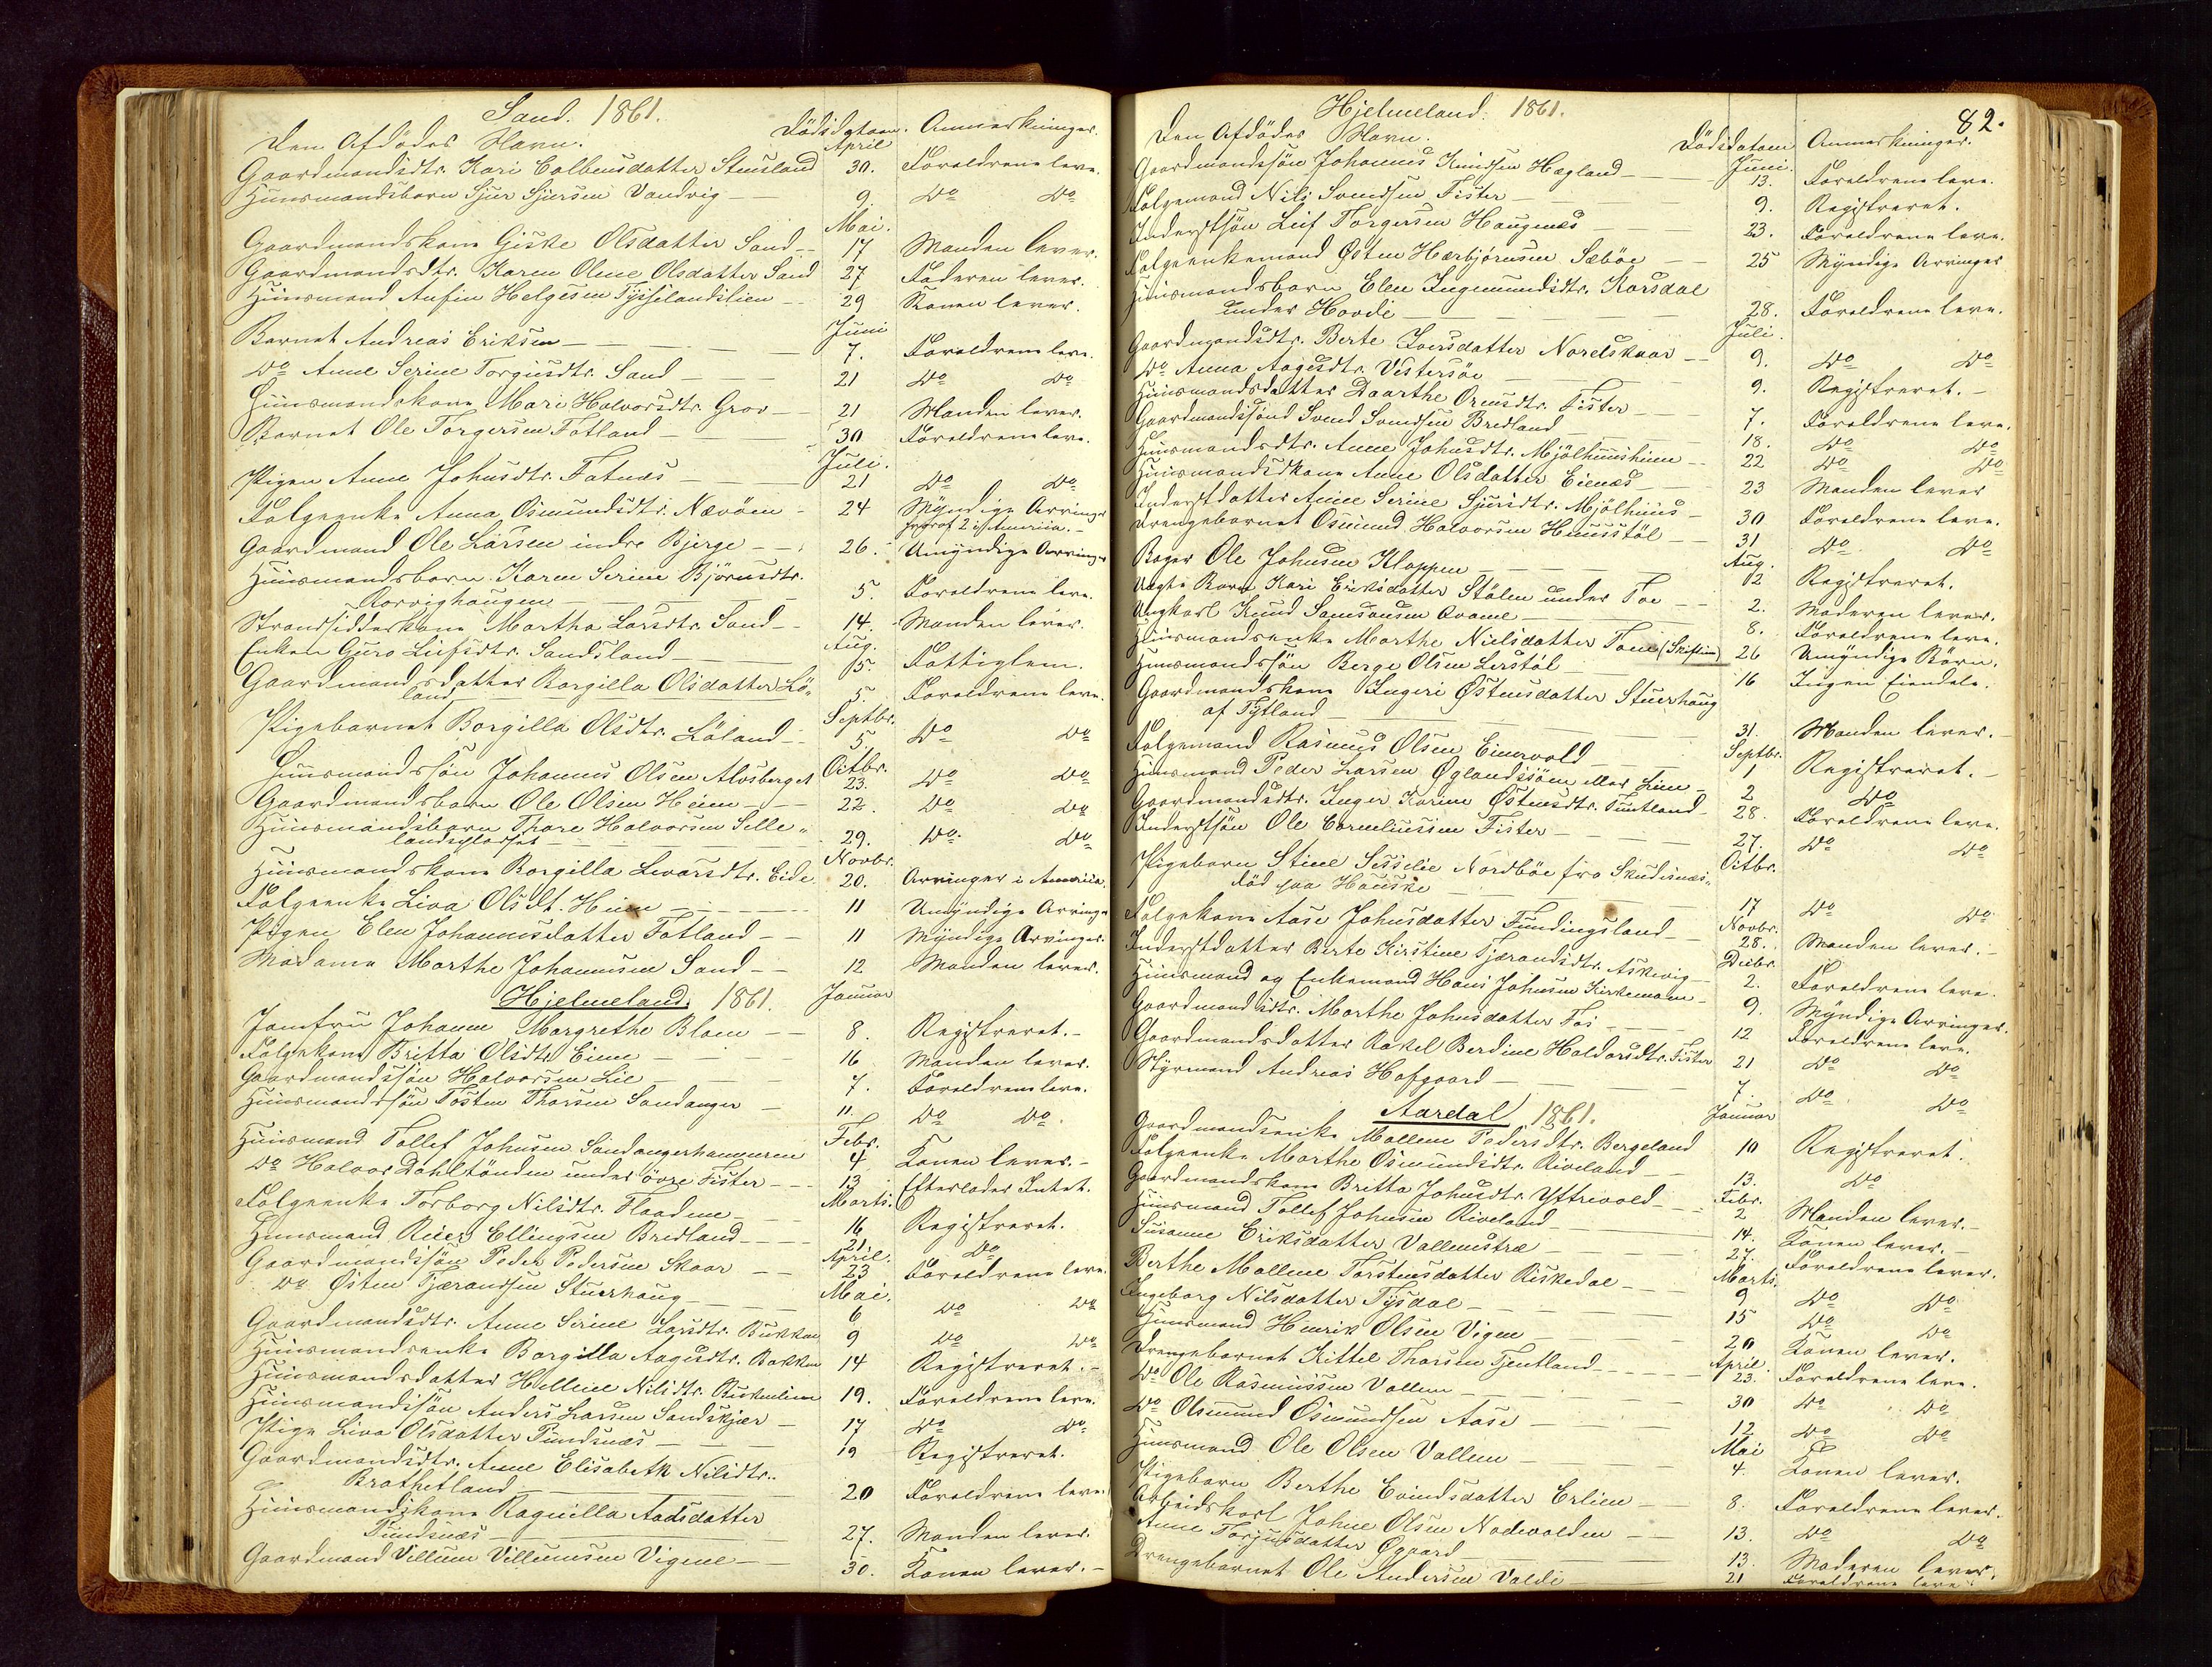 Sand. 1861.
Den Afdödes Navn. Dödsdatum. Anmerkninger.
April
Gaardmandsdtr. Kari Colbensdatter Stensland 30. Foreldrene leve.
Huusmandsbarn Sjur Sjursen Vandvig — 9. Do Do
Mai.
Gaardmandskone Giske Olsdatter Sand — 17 Manden lever.
Gaardmandsdtr. Karen Oline Olsdatter Sand 27 Faderen lever.
Huusmand Anfin Helgesen Tysselandslien — 29 Konen lever.
Juni
Barnet Andreas Eriksen — 7. Foreldrene leve.
Do Anne Serine Torgiisdtr. Sand — 21 Do Do
Huusmandskone Mari Halvorsdtr. Grov — 21 Manden lever.
Barnet Ole Torgersen Fatland — 30 Foreldrene leve.
Juli.
Pigen Anne Johnsdtr. Fatnæs — 21 Do Do
Folgeenke Anna Osmundsdtr. Nævöen — 24 Myndige Arvinger
hvoraf 2 i America. —
Gaardmand Ole Larsen indre Bjerge — 26. Umyndige Arvinger
Huusmandsbarn Karen Serine Björnsdtr.
Rorvighaugen — 5. Foreldrene leve.
Strandsidderkone Martha Larsdtr. Sand — 14. Manden lever.
Aug.
Enken Guro Liefsdtr. Sandsland — 15. Fattiglem.
Gaardmandsdatter Borgilla Olsdatter Lö-
land 5. Foreldrene leve.
Septbr.
Pigebarnet Borgilla Olsdtr. Löland — 5. Do Do
Octbr.
Huusmandssön Johannes Olsen Alvsberget 23. Do Do
Gaardmandsbarn Ole Olsen Heim — 22. Do Do
Huusmandsbarn Thore Halvorsen Selle-
landspladset — 29. Do Do
Novbr.
Huusmandskone Borgilla Levarsdtr. Eide. 20. Arvinger i America.
Folgeenke Liva Olsdt. Heim — 11 Umyndige Arvinger
Pigen Elen Johannesdatter Fatland — 11 Myndige Arvinger.
Madame Marthe Johannesen Sand — 12 Manden lever.
Hjelmeland. 1861. Januar
Jomfru Johanne Margrethe Blom — 8. Registreret. —
Folgekone Britta Olsdtr. Eime — 16 Manden lever.
Gaardmandssön Halvorsen Lie — 7. Foreldrene leve.
Huusmandssön Tosten Thorsen Sandanger — 11. Do Do.
Febr.
Huusmand Tollef Johnsen Sandangerhammeren 4 Konen lever. —
Do Halvor Dahltönden under övre Fister — 13 Efterlader Intet.
Marts.
Folgeenke Torborg Nilsdtr. Flaadene — 16 Registreret.
Huusmand Reier Ellingsen Bredland — 21 Do
April.
Gaardmandssön Peder Pedersen Skaar — 23 Foreldrene leve.
Mai.
Do Östen Tjærandsen Stuerhaug — 6 Do Do
Gaardmandsdtr. Anne Serine Larsdtr. Bakken 9 Do Do
Huusmandsenke Borgilla Aagesdtr. Bakken 14 Registreret. —
Huusmandsdatter Helline Nilsdtr. 19. Foreldrene leve.
Huusmandssön Anders Larsen Sandskjær — 17 Do Do
Pige Liva Olsdatter Tundnæs — 19 Registreret.
Gaardmandsdtr. Anne Elisabeth Nilsdtr.
Brathetland — 20 Foreldrene leve.
Huusmandskone Ragnilla Aadsdatter
Tundnæs — 27. Manden lever.
Gaardmand Villum Villumsen Vigene — 30. Konen lever. —
Hjelmeland. 1861. 82.
Den Afdödes Navn. Dödsdatum Anmerkninger.
Juni.
Gaardmandssön Johannes Knudsen Hægland — 13. Foreldrene leve.
Folgemand Nils Svendsen Fister — 9. Registreret.
Inderstsön Leif Torgersen Haugenæs — 23. Foreldrene leve.
Folgeenkemand Östen Hærbjörnsen Sæböe — 25 Myndige Arvinger
Huusmandsbarn Elen Ingemundsdtr. Korsdal
under Hovde — 28. Foreldrene leve.
Juli.
Gaardmandsdtr. Berte Iversdatter Nordskaar — 9. Do Do
Do Anna Aagesdtr. Vestersöe — 9. Registreret. —
Huusmandsdatter Daarthe Ormsdtr. Fister — 7. Foreldrene leve.
Gaardmandssönd Svend Svendsen Bredland — 18. Do Do
Huusmandsdtr. Anne Johnsdtr. Mjölhuusheim — 22 Do Do
Huusmandskone Anne Olsdatter Eienæs — 23 Manden lever
Inderstdatter Anne Serine Sjursdtr. Mjölhuus — 30 Foreldrene leve.
Drengebarnet Osmund Halvorsen Huusstöl — 31 Do Do
Aug.
Bager Ole Johnsen Kloppen — 12 Registreret.
Uægte Barn Kari Eriksdatter Stölen under Toe — 2. Moderen lever.
Ungkarl Knud Samsonsen Qvame — 8. Foreldrene leve.
Huusmandsenke Marthe Nielsdatter Tone (Skiftin) 26 Umyndige Börn.
Huusmandssön Berge Olsen Lerstöl — 16 Ingen Eiendele.
Gaardmandskone Ingeri Östensdatter Stuerhaug
af Tytland — 31. Manden lever. —
Septbr.
Folgemand Rasmus Olsen Eimevold — 1 Registreret. —
Huusmand Peder Larsen Öglandssöen eller Lien — 2 Do
Gaardmandsdtr. Inger Karine Östensdtr. Tuntland — 28. Foreldrene leve.
Inderstsön Ole Corneliussen Fister — 27. Do Do
Octbr.
Pigebarn Stine Sesselie Nordböe fra Skudesnæs,
död paa Hauske — 17 Do Do
Novbr.
Folgekone Aase Johnsdatter Fundingsland — 28. Manden lever. —
Decbr.
Inderstdatter Berte Kirstine Tjærandsdtr. Askevig — 2. Foreldrene leve.
Huusmand og Enkemand Hans Johnsen Kirkemoen — 9. Myndige Arvinger.
Gaardmandsdtr. Marthe Johnsdatter Fos — 12 Foreldrene leve.
Gaardmandsdatter Rakel Berdine Haldorsdtr. Fister 21 Do Do
Styrmand Andreas Hofgaard — 7. Do Do
Aardal 1861. Januar
Gaardmandsenke Mallene Pedersdtr. Bergeland 10 Registreret.
Folgeenke Marthe Osmundsdtr. Riveland — 13. Do
Febr.
Gaardmandskone Britta Johnsdtr. Yttrevold — 2 Manden lever. —
Huusmand Tollef Johnsen Riveland — 14. Konen lever. —
Susanne Eriksdatter Vallemstræ — 27. Foreldrene lever.
Marts.
Berthe Mallene Torstensdatter Riskedal — 9 Do Do
Ingeborg Nilsdatter Tysdal — 15 Do Do
Huusmand Henrik Olsen Vigen — 20 Konen lever.
April.
Drengebarnet Kittel Thorsen Tjentland — 23. Foreldrene leve.
Do Ole Rasmussen Vallem — 30 Do Do
Do Olsmund Osmundsen Aase — 12 Do Do
Mai
Huusmand Ole Olsen Vallem — 4. Konen lever.
Pigebarn Berthe Evindsdatter Erlien — 8. Foreldrene lever.
Arbeidskarl Johne Olsen Nodevolden — 13. Do Do
Anne Torjusdatter Ögaard — 13. Moderen lever.
Drengebarnet Ole Andersen Valde — 21 Foreldrene leve.